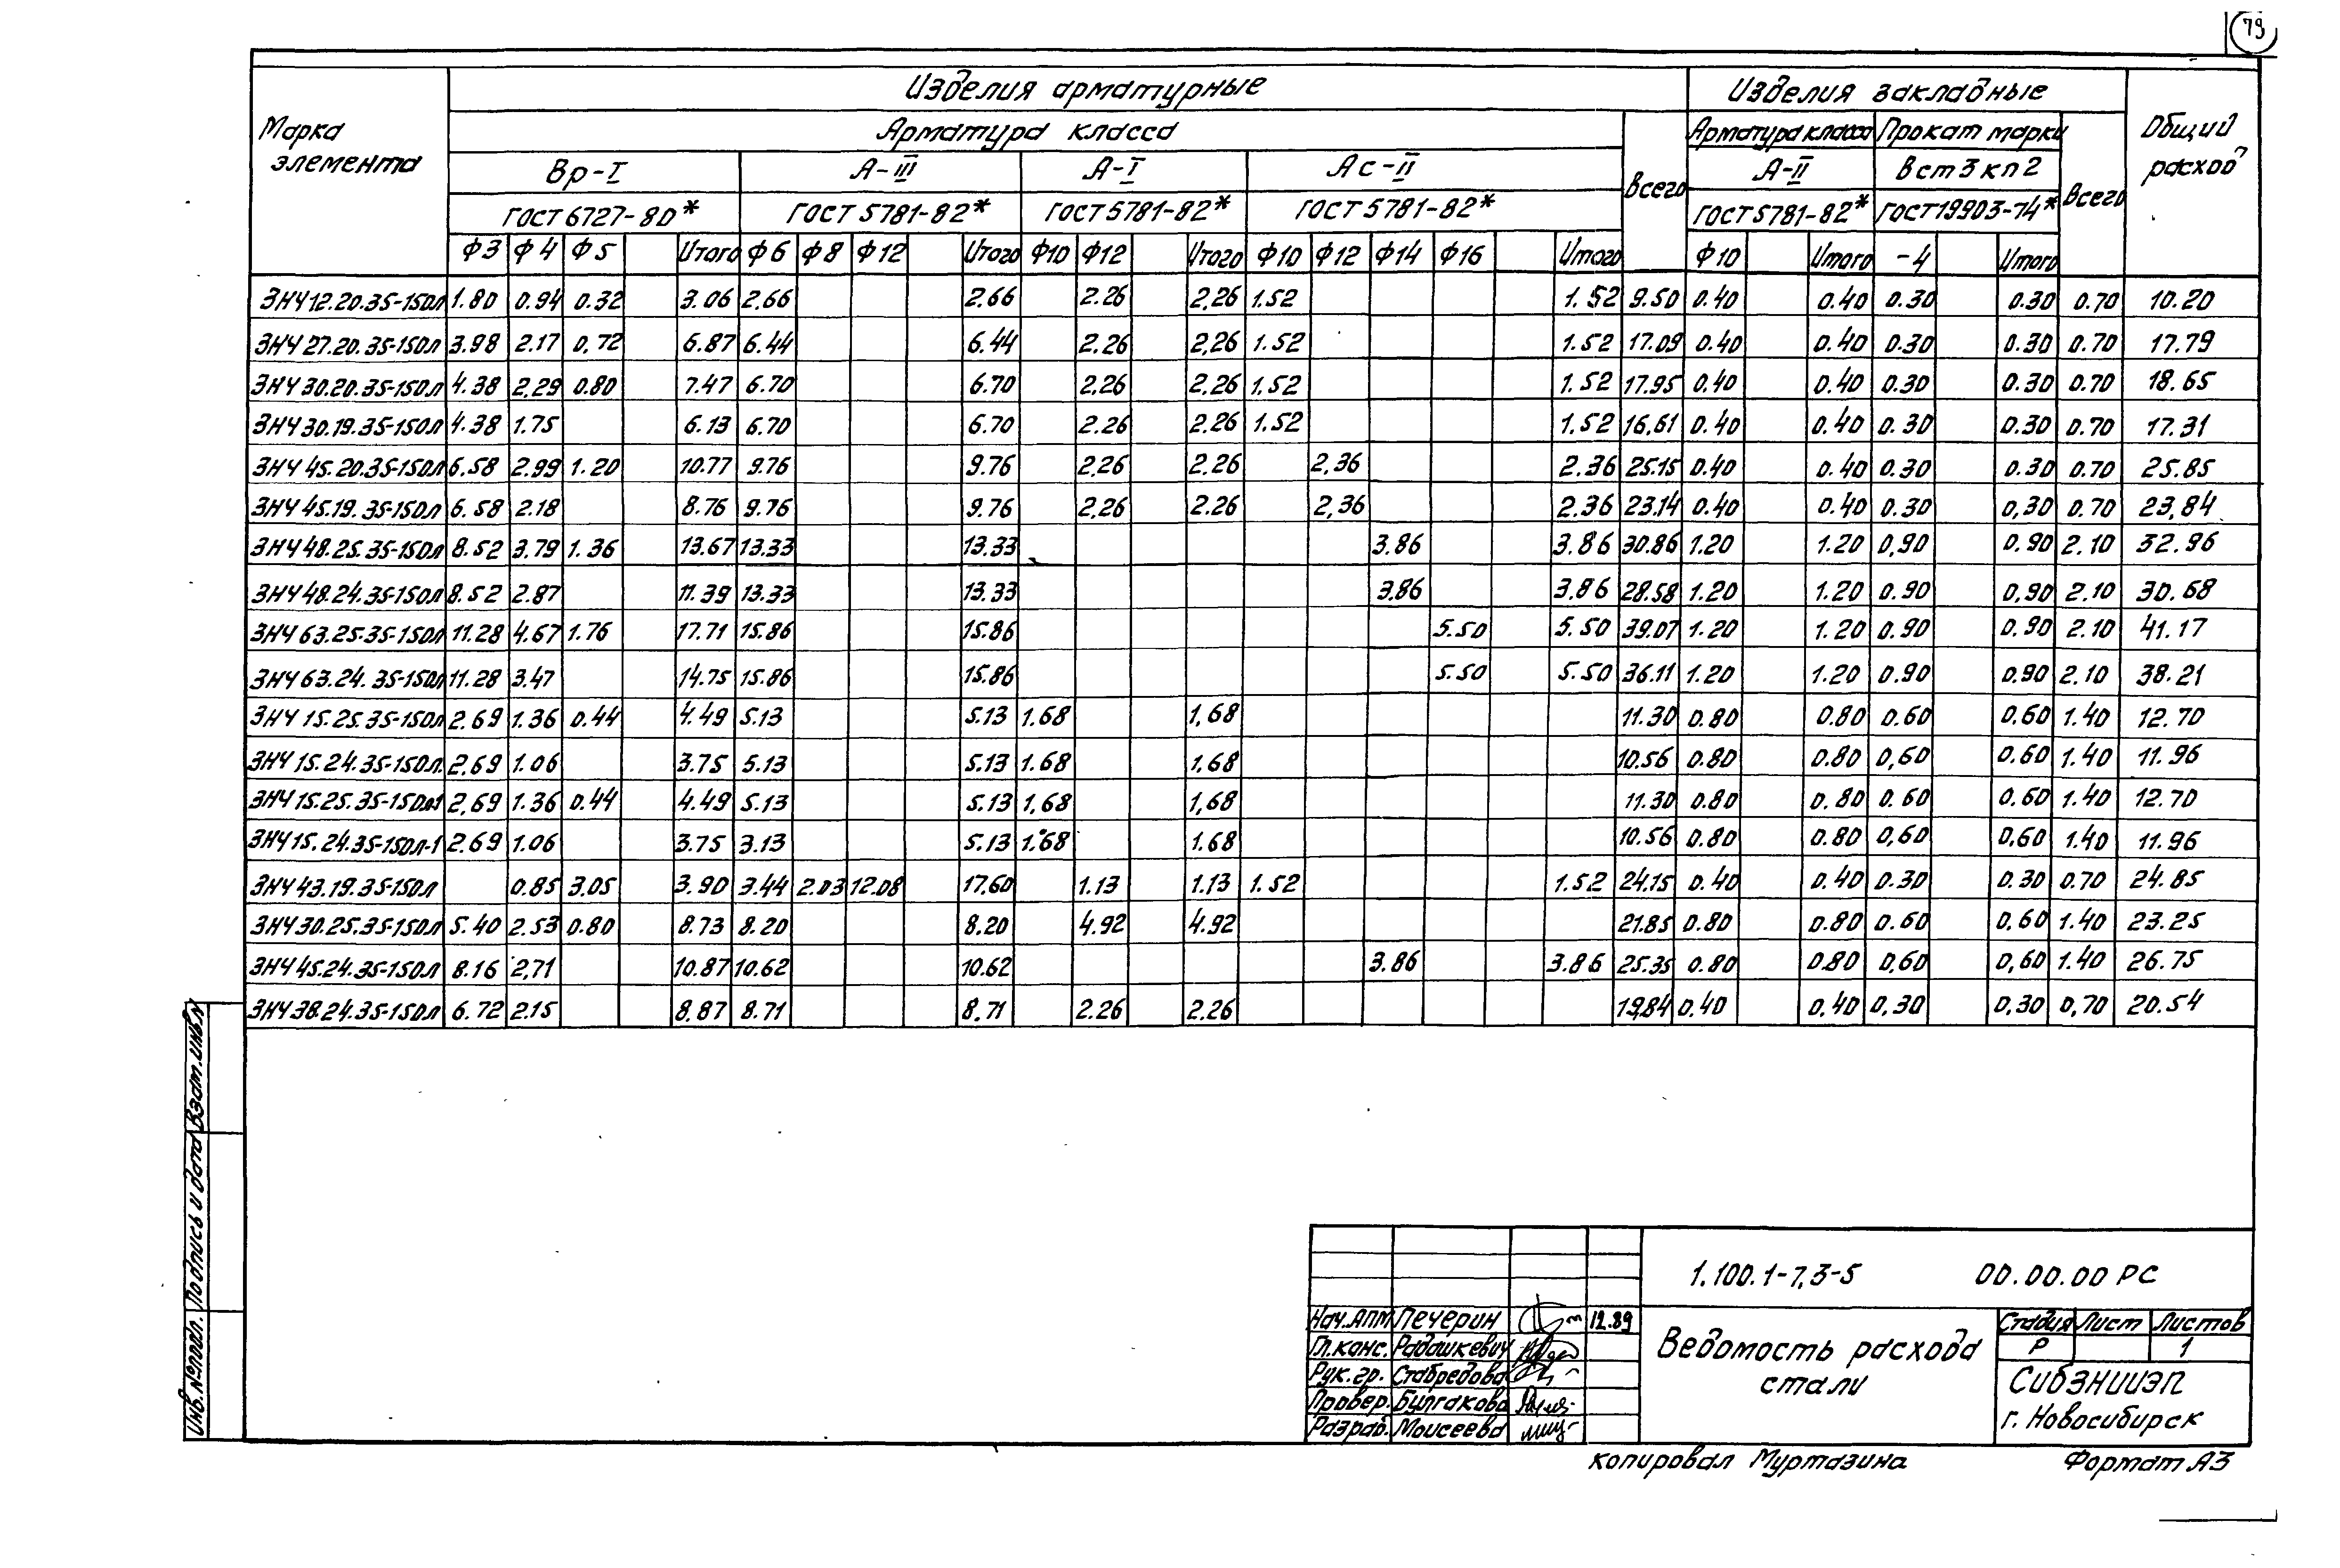 79
Изделия арматурные Изделия закладные
Марка элемента Арматура класса Всего Арматура класса Прокат марки Всего Общий расход
Вр-I А-III А-I Ас-II А-II Вст3кп2
ГОСТ 6727-80* ГОСТ 5781-82* ГОСТ 5781-82* ГОСТ 5781-82* ГОСТ 5781-82* ГОСТ 19903-74*
Ф3 Ф4 Ф5 Итого Ф6 Ф8 Ф12 Итого Ф10 Ф12 Итого Ф10 Ф12 Ф14 Ф16 Итого Ф10 Итого -4 Итого
3НЧ 12.20.35-150Л 1.80 0.94 0.32 3.06 2.66 2.66 2.26 2.26 1.52 1.52 9.50 0.40 0.40 0.30 0.30 0.70 10.20
3НЧ 27.20.35-150Л 3.98 2.17 0.72 6.87 6.44 6.44 2.26 2.26 1.52 1.52 17.09 0.40 0.40 0.30 0.30 0.70 17.79
3НЧ 30.20.35-150Л 4.38 2.29 0.80 7.47 6.70 6.70 2.26 2.26 1.52 1.52 17.95 0.40 0.40 0.30 0.30 0.70 18.65
3НЧ 30.19.35-150Л 4.38 1.75 6.13 6.70 6.70 2.26 2.26 1.52 1.52 16.61 0.40 0.40 0.30 0.30 0.70 17.31
3НЧ 45.20.35-150Л 6.58 2.99 1.20 10.77 9.76 9.76 2.26 2.26 2.36 2.36 25.15 0.40 0.40 0.30 0.30 0.70 25.85
3НЧ 45.19.35-150Л 6.58 2.18 8.76 9.76 9.76 2.26 2.26 2.36 2.36 23.14 0.40 0.40 0.30 0.30 0.70 23.84
3НЧ 48.25.35-150Л 8.52 3.79 1.36 13.67 13.33 13.33 3.86 3.86 30.86 1.20 1.20 0.90 0.90 2.10 32.96
3НЧ 48.24.35-150Л 8.52 2.87 11.39 13.33 13.33 3.86 3.86 28.58 1.20 1.20 0.90 0.90 2.10 30.68
3НЧ 63.25.35-150Л 11.28 4.67 1.76 17.71 15.86 15.86 5.50 5.50 39.07 1.20 1.20 0.90 0.90 2.10 41.17
3НЧ 63.24.35-150Л 11.28 3.47 14.75 15.86 15.86 5.50 5.50 36.11 1.20 1.20 0.90 0.90 2.10 38.21
3НЧ 15.25.35-150Л 2.69 1.36 0.44 4.49 5.13 5.13 1.68 1.68 11.30 0.80 0.80 0.60 0.60 1.40 12.70
3НЧ 15.24.35-150Л 2.69 1.06 3.75 5.13 5.13 1.68 1.68 10.56 0.80 0.80 0.60 0.60 1.40 11.96
3НЧ 15.25.35-150Л-1 2.69 1.36 0.44 4.49 5.13 5.13 1.68 1.68 11.30 0.80 0.80 0.60 0.60 1.40 12.70
3НЧ 15.24.35-150Л-1 2.69 1.06 3.75 3.13 5.13 1.68 1.68 10.56 0.80 0.80 0.60 0.60 1.40 11.96
3НЧ 43.19.35-150Л 0.85 3.05 3.90 3.44 2.03 12.08 17.60 1.13 1.13 1.52 1.52 24.15 0.40 0.40 0.30 0.30 0.70 24.85
3НЧ 30.25.35-150Л 5.40 2.53 0.80 8.73 8.20 8.20 4.92 4.92 21.85 0.80 0.80 0.60 0.60 1.40 23.25
3НЧ 45.24.35-150Л 8.16 2.71 10.87 10.62 10.62 3.86 3.86 25.35 0.80 0.80 0.60 0.60 1.40 26.75
3НЧ 38.24.35-150Л 6.72 2.15 8.87 8.71 8.71 2.26 2.26 19.84 0.40 0.40 0.30 0.30 0.70 20.54
Взам. инв. N
Подпись и дата
Инв. № подл.
1.100.1-7.3-5 00.00.00 РС
Нач.АПМ Печерин 12.89
Гл.конс. Радашкевич
Рук.гр. Стабредова
Провер. Булгакова
Разраб. Моисеева
Ведомость расхода стали
Стадия Лист Листов
Р 1
СибЗНИИЭП
г. Новосибирск
копировал Муртазина Формат А3